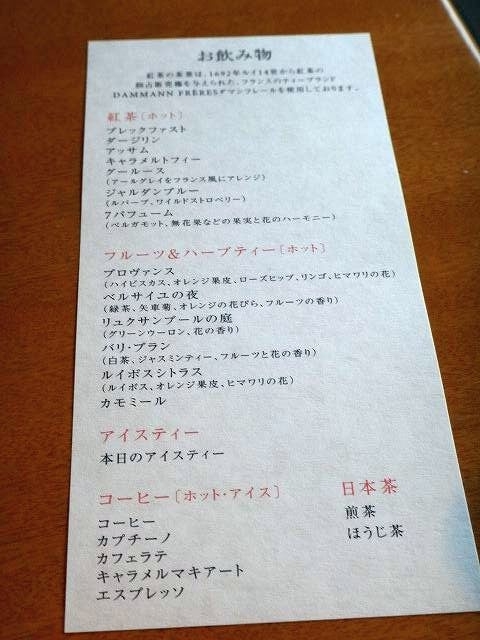 お飲み物
紅茶の茶葉は、1692年ルイ14世から紅茶の
独占販売権を与えられた、フランスのティーブランド
DAMMANN FRÈRESダマンフレールを使用しております。
紅茶〔ホット〕
ブレックファスト
ダージリン
アッサム
キャラメルトフィー
グールース
（アールグレイをフランス風にアレンジ）
ジャルダンブルー
（ルバーブ、ワイルドストロベリー）
7パフューム
（ベルガモット、無花果などの果実と花のハーモニー）
フルーツ＆ハーブティー〔ホット〕
プロヴァンス
（ハイビスカス、オレンジ果皮、ローズヒップ、リンゴ、ヒマワリの花）
ベルサイユの夜
（緑茶、矢車菊、オレンジの花びら、フルーツの香り）
リュクサンブールの庭
（グリーンウーロン、花の香り）
バリ・ブラン
（白茶、ジャスミンティー、フルーツと花の香り）
ルイボスシトラス
（ルイボス、オレンジ果皮、ヒマワリの花）
カモミール
アイスティー
本日のアイスティー
コーヒー〔ホット・アイス〕
コーヒー
カプチーノ
カフェラテ
キャラメルマキアート
エスプレッソ
日本茶
煎茶
ほうじ茶